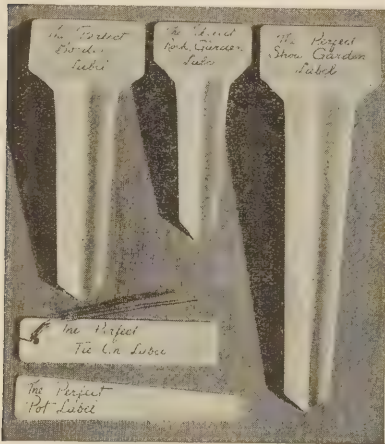 The Perfect
Border
Label
The
Rock Garden
Label
The Perfect
Show Garden
Label
The Perfect
Tie On Label
The Perfect
Pot Label